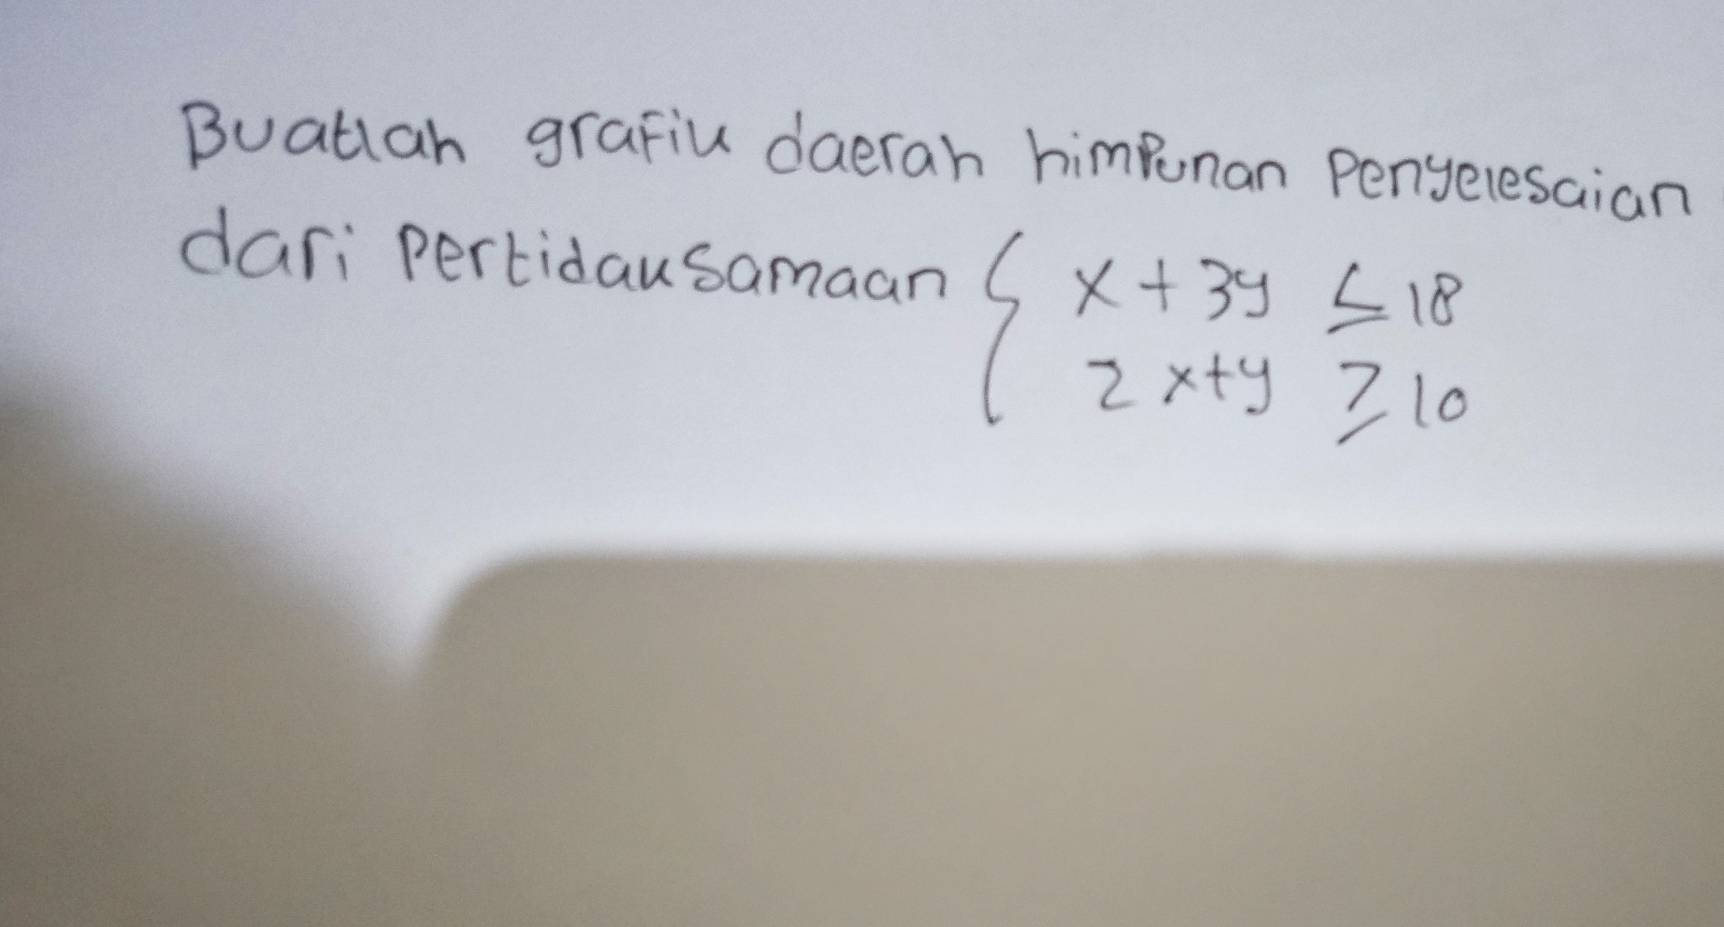 Buatlah grafik daerah himpunan penyelesaian
dari pertidaksamaan { x + 3y ≤ 18
2x+y ≥ 10